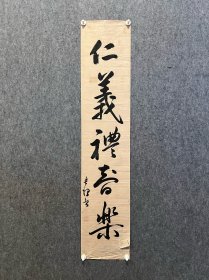 仁義禮智樂